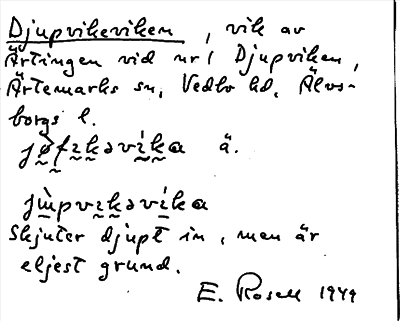 Djupvikeviken, vik av
Ärtingen vid nr 1 Djupviken,
Ärtemarks sn, Vedbo hd, Älvs-
borgs l.
jøfɪkəvika ä.
jɯ̀pvɪkəvika
Skjuter djupt in, men är
eljest grund.
E. Rosell 1949